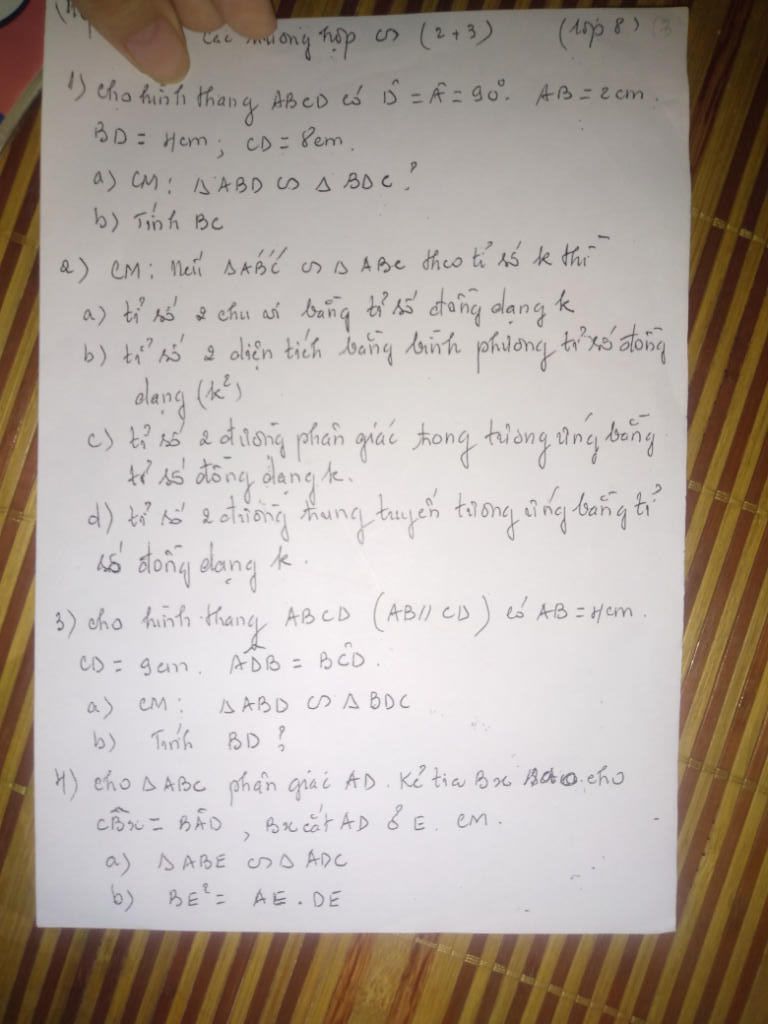 Các trường hợp ∽ (2+3) (lớp 8)
1) Cho hình thang ABCD có D̂ = Â = 90°. AB = 2cm.
BD = 4cm; CD = 8cm.
a) CM: Δ ABD ∽ Δ BDC?
b) Tính BC
2) CM: Nếu ΔA'B'C' ∽ Δ ABC theo tỉ số k thì
a) tỉ số 2 chu vi bằng tỉ số đồng dạng k
b) tỉ số 2 diện tích bằng bình phương tỉ số đồng
dạng (k²)
c) tỉ số 2 đường phân giác trong tương ứng bằng
tỉ số đồng dạng k.
d) tỉ số 2 đường trung tuyến tương ứng bằng tỉ
số đồng dạng k.
3) Cho hình thang ABCD (AB // CD) có AB = 4cm.
CD = 9cm. AD̂B = BĈD.
a) CM: Δ ABD ∽ Δ BDC
b) Tính BD?
4) Cho ΔABC phân giác AD. Kẻ tia Bx sao cho
CB̂x = BÂD, Bx cắt AD ở E. CM.
a) Δ ABE ∽ Δ ADC
b) BE² = AE . DE